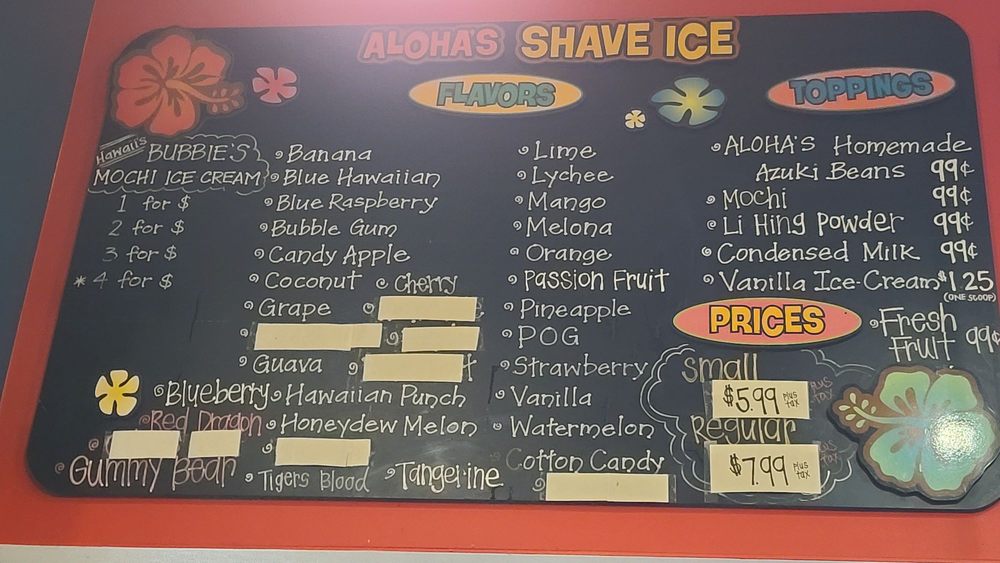 ALOHA'S SHAVE ICE
FLAVORS
TOPPINGS
Hawaii's
BUBBIE'S
MOCHI ICE CREAM
1 for $
2 for $
3 for $
* 4 for $
Banana
Blue Hawaiian
Blue Raspberry
Bubble Gum
Candy Apple
Coconut
Cherry
Grape
Guava
Blueberry
Hawaiian Punch
Red Dragon
Honeydew Melon
Gummy Bear
Tigers Blood
Tangerine
Lime
Lychee
Mango
Melona
Orange
Passion Fruit
Pineapple
POG
Strawberry
Vanilla
Watermelon
Cotton Candy
ALOHA'S Homemade
Azuki Beans 99¢
Mochi 99¢
Li Hing Powder 99¢
Condensed Milk 99¢
Vanilla Ice-Cream $1.25
(ONE SCOOP)
Fresh
Fruit 99¢
PRICES
Small
$5.99 plus tax
plus tax
Regular
$7.99 plus tax
plus tax